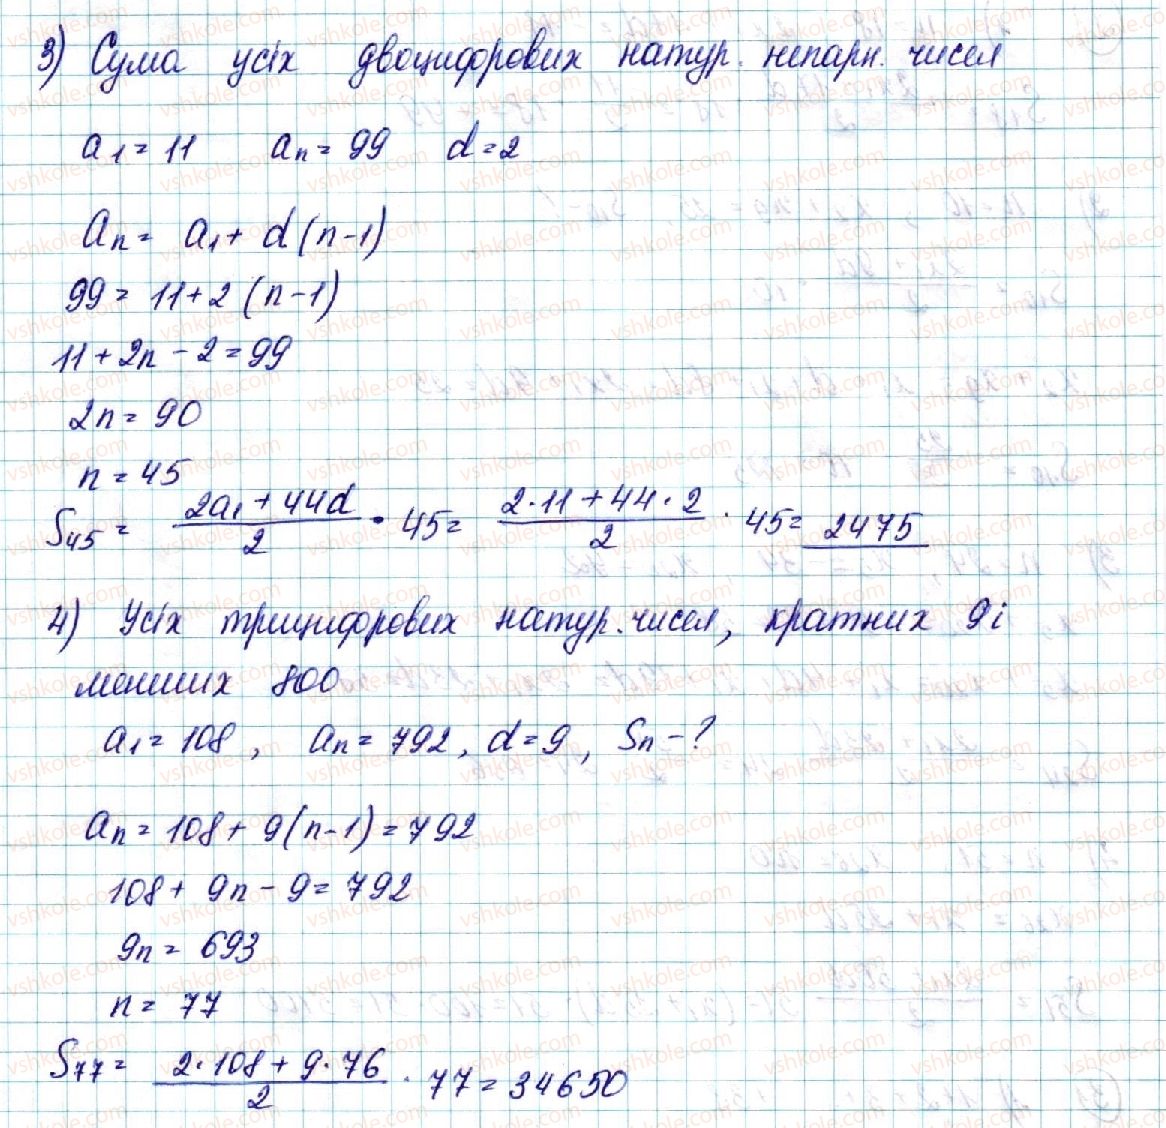 3) Сума усіх двоцифрових натур. непарн. чисел
a₁ = 11 aₙ = 99 d = 2
aₙ = a₁ + d(n-1)
99 = 11 + 2(n-1)
11 + 2n - 2 = 99
2n = 90
n = 45
S₄₅ = (2a₁ + 44d)/2 · 45 = (2·11 + 44·2)/2 · 45 = 2475
4) Усіх трицифрових натур. чисел, кратних 9 і
менших 800
a₁ = 108, aₙ = 792, d = 9, Sₙ - ?
aₙ = 108 + 9(n-1) = 792
108 + 9n - 9 = 792
9n = 693
n = 77
S₇₇ = (2·108 + 9·76)/2 · 77 = 34650